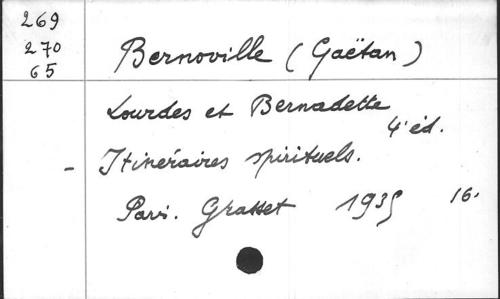 269
270
65
Bernoville (Gaëtan)
Lourdes et Bernadette
4e éd.
- Itinéraires spirituels.
Paris. Grasset 1935 16.